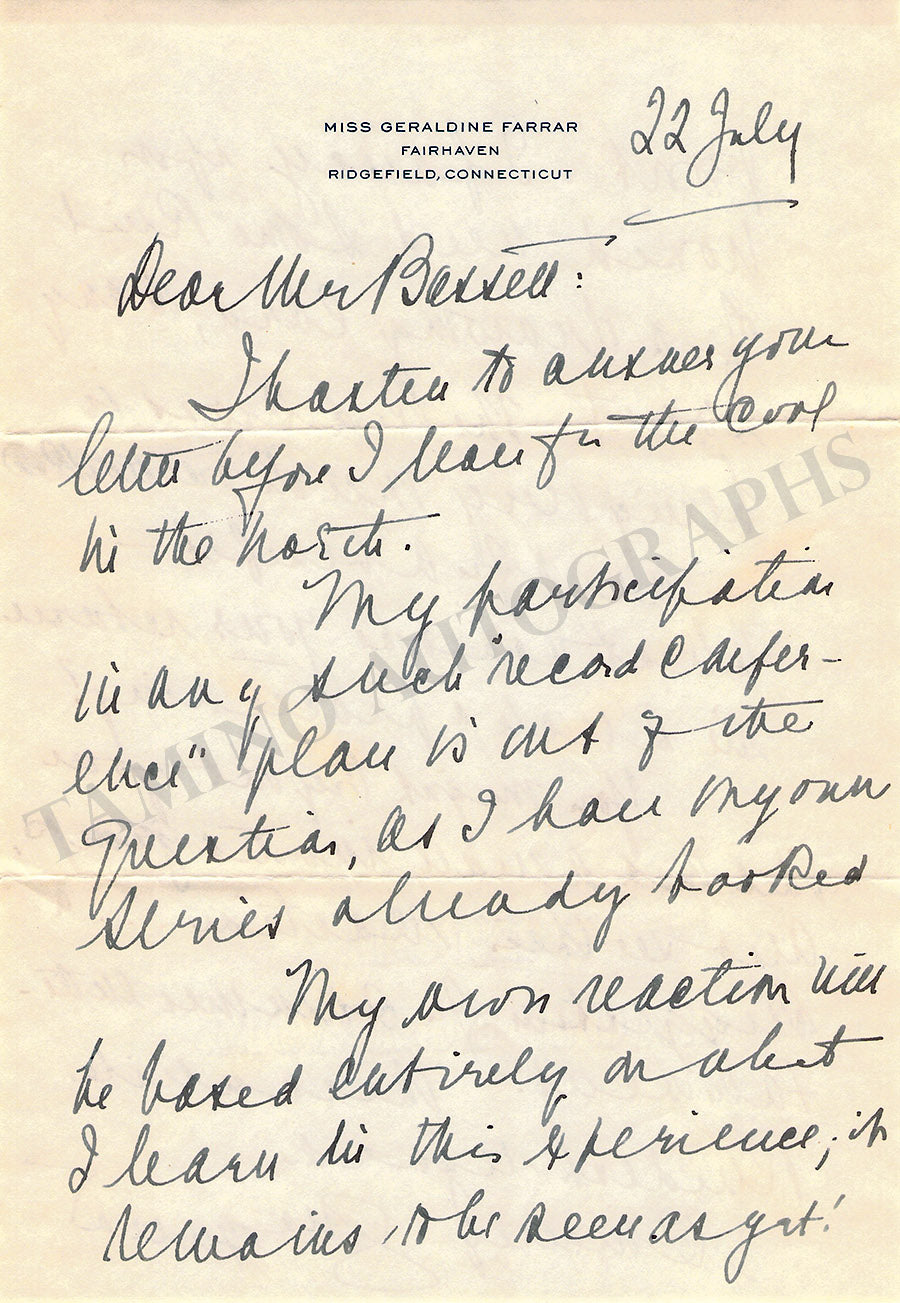 MISS GERALDINE FARRAR
FAIRHAVEN
RIDGEFIELD, CONNECTICUT
22 July
Dear Mr Bassett:
I hasten to answer your
letter before I leave for the cool
in the north.
My participation
in any such "record confer-
ence" plan is out of the
question, as I have my own
series already booked
My own reaction will
be based entirely on what
I learn in this experience; it
remains to be seen as yet!
TAMINO AUTOGRAPHS